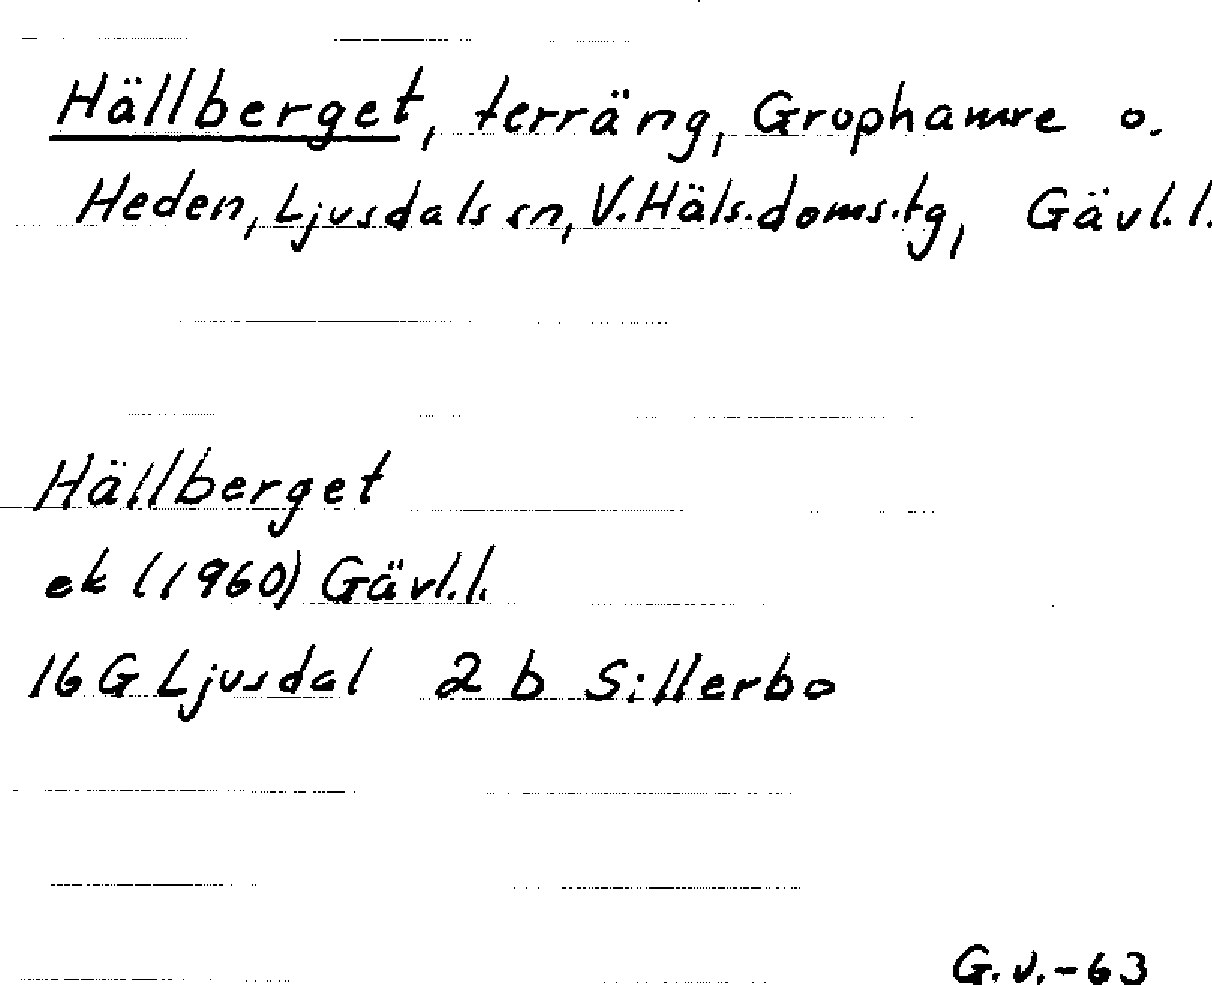 Hällberget, terräng, Grophamre o.
Heden, Ljusdals sn, V. Häls. doms. tg, Gävl. l.
Hällberget
ek (1960) Gävl. l.
16 G Ljusdal 2 b Sillerbo
G. V. -63